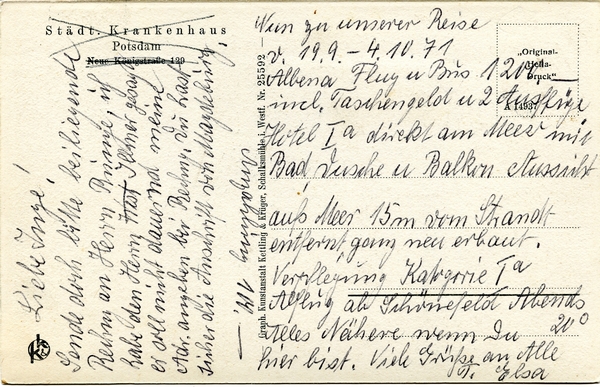 Städt. Krankenhaus
Potsdam
Neue Königstraße 129
Liebe Inge!
Sende doch bitte beiliegende
Rechn an Herrn Runge, ich
habe den Herrn Illmer gesagt
er soll nicht dauernd meine
Adr. angeben bei Rechng. Du hast
sicher die Anschrift von Magdeburg.
Anzahlung
Graph. Kunstanstalt Kettling & Krüger, Schalksmühle i. Westf. Nr. 25592
„Original-
Hella-
Druck"
A 14637
Nun zu unserer Reise
v. 19.9. – 4.10.71
Albena Flug u Bus
incl. Taschengeld u 2 Ausflüge
Hotel Ia direkt am Meer mit
Bad Dusche u Balkon Aussicht
aufs Meer 15m vom Strandt
entfernt ganz neu erbaut.
Verpflegung Kategorie Ia
Abflug ab Schönefeld Abends
20°
Alles Nähere wenn Du
hier bist. Viele Grüße an Alle
T. Elsa